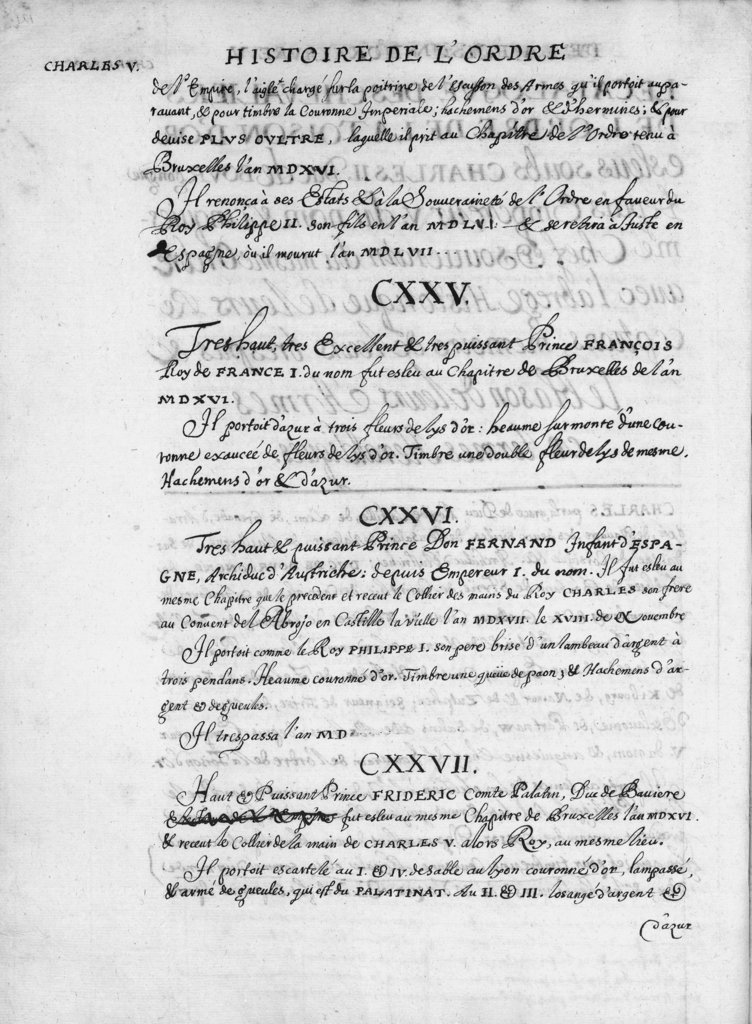 HISTOIRE DE L'ORDRE
CHARLES V.
de l'Empire, l'aigle chargé sur la poitrine de l'escusson des Armes qu'il portoit aupa-
ravant, & pour timbre la Couronne Imperiale; hachemens d'or & d'hermines; & pour
devise PLUS OULTRE, laquelle il prit au Chapitre de l'Ordre tenu à
Bruxelles l'an MDXVI.
Il renonça à ses Estats & à la Souveraineté de l'Ordre en faveur du
Roy Philippe II. son fils en l'an MDLVI: & se retira à Juste en
Espagne, où il mourut l'an MDLVII..
CXXV.
Tres haut, tres Excellent & tres puissant Prince FRANÇOIS
Roy de FRANCE I. du nom fut esleu au Chapitre de Bruxelles de l'an
MDXVI.
Il portoit d'azur à trois fleurs de lys d'or: heaume surmonté d'une cou-
ronne exaucée de fleurs de lys d'or. Timbre une double fleur de lys de mesme.
Hachemens d'or & d'azur.
CXXVI.
Tres haut & puissant Prince Don FERNAND Infant d'ESPA-
GNE, Archiduc d'Austriche; depuis Empereur I. du nom. Il fut esleu au
mesme Chapitre que le precedent et receut le Collier des mains du Roy CHARLES son frere
au Convent del Abrojo en Castille la vielle l'an MDXVII. le XVIII. de Novembre
Il portoit comme le Roy PHILIPPE I. son pere brisé d'un lambeau d'argent à
trois pendans. Heaume couronné d'or. Timbre une queüe de paon; & Hachemens d'ar-
gent & de gueules.
Il trespassa l'an MD
CXXVII.
Haut & Puissant Prince FRIDERIC Comte Palatin, Duc de Baviere
fut esleu au mesme Chapitre de Bruxelles l'an MDXVI.
& receut le Collier de la main de CHARLES V. alors Roy, au mesme lieu.
Il portoit escartelé au I. & IV. de sable au lyon couronné d'or, lampassé,
& armé de gueules, qui est du PALATINAT. Au II. & III. losangé d'argent &
d'azur